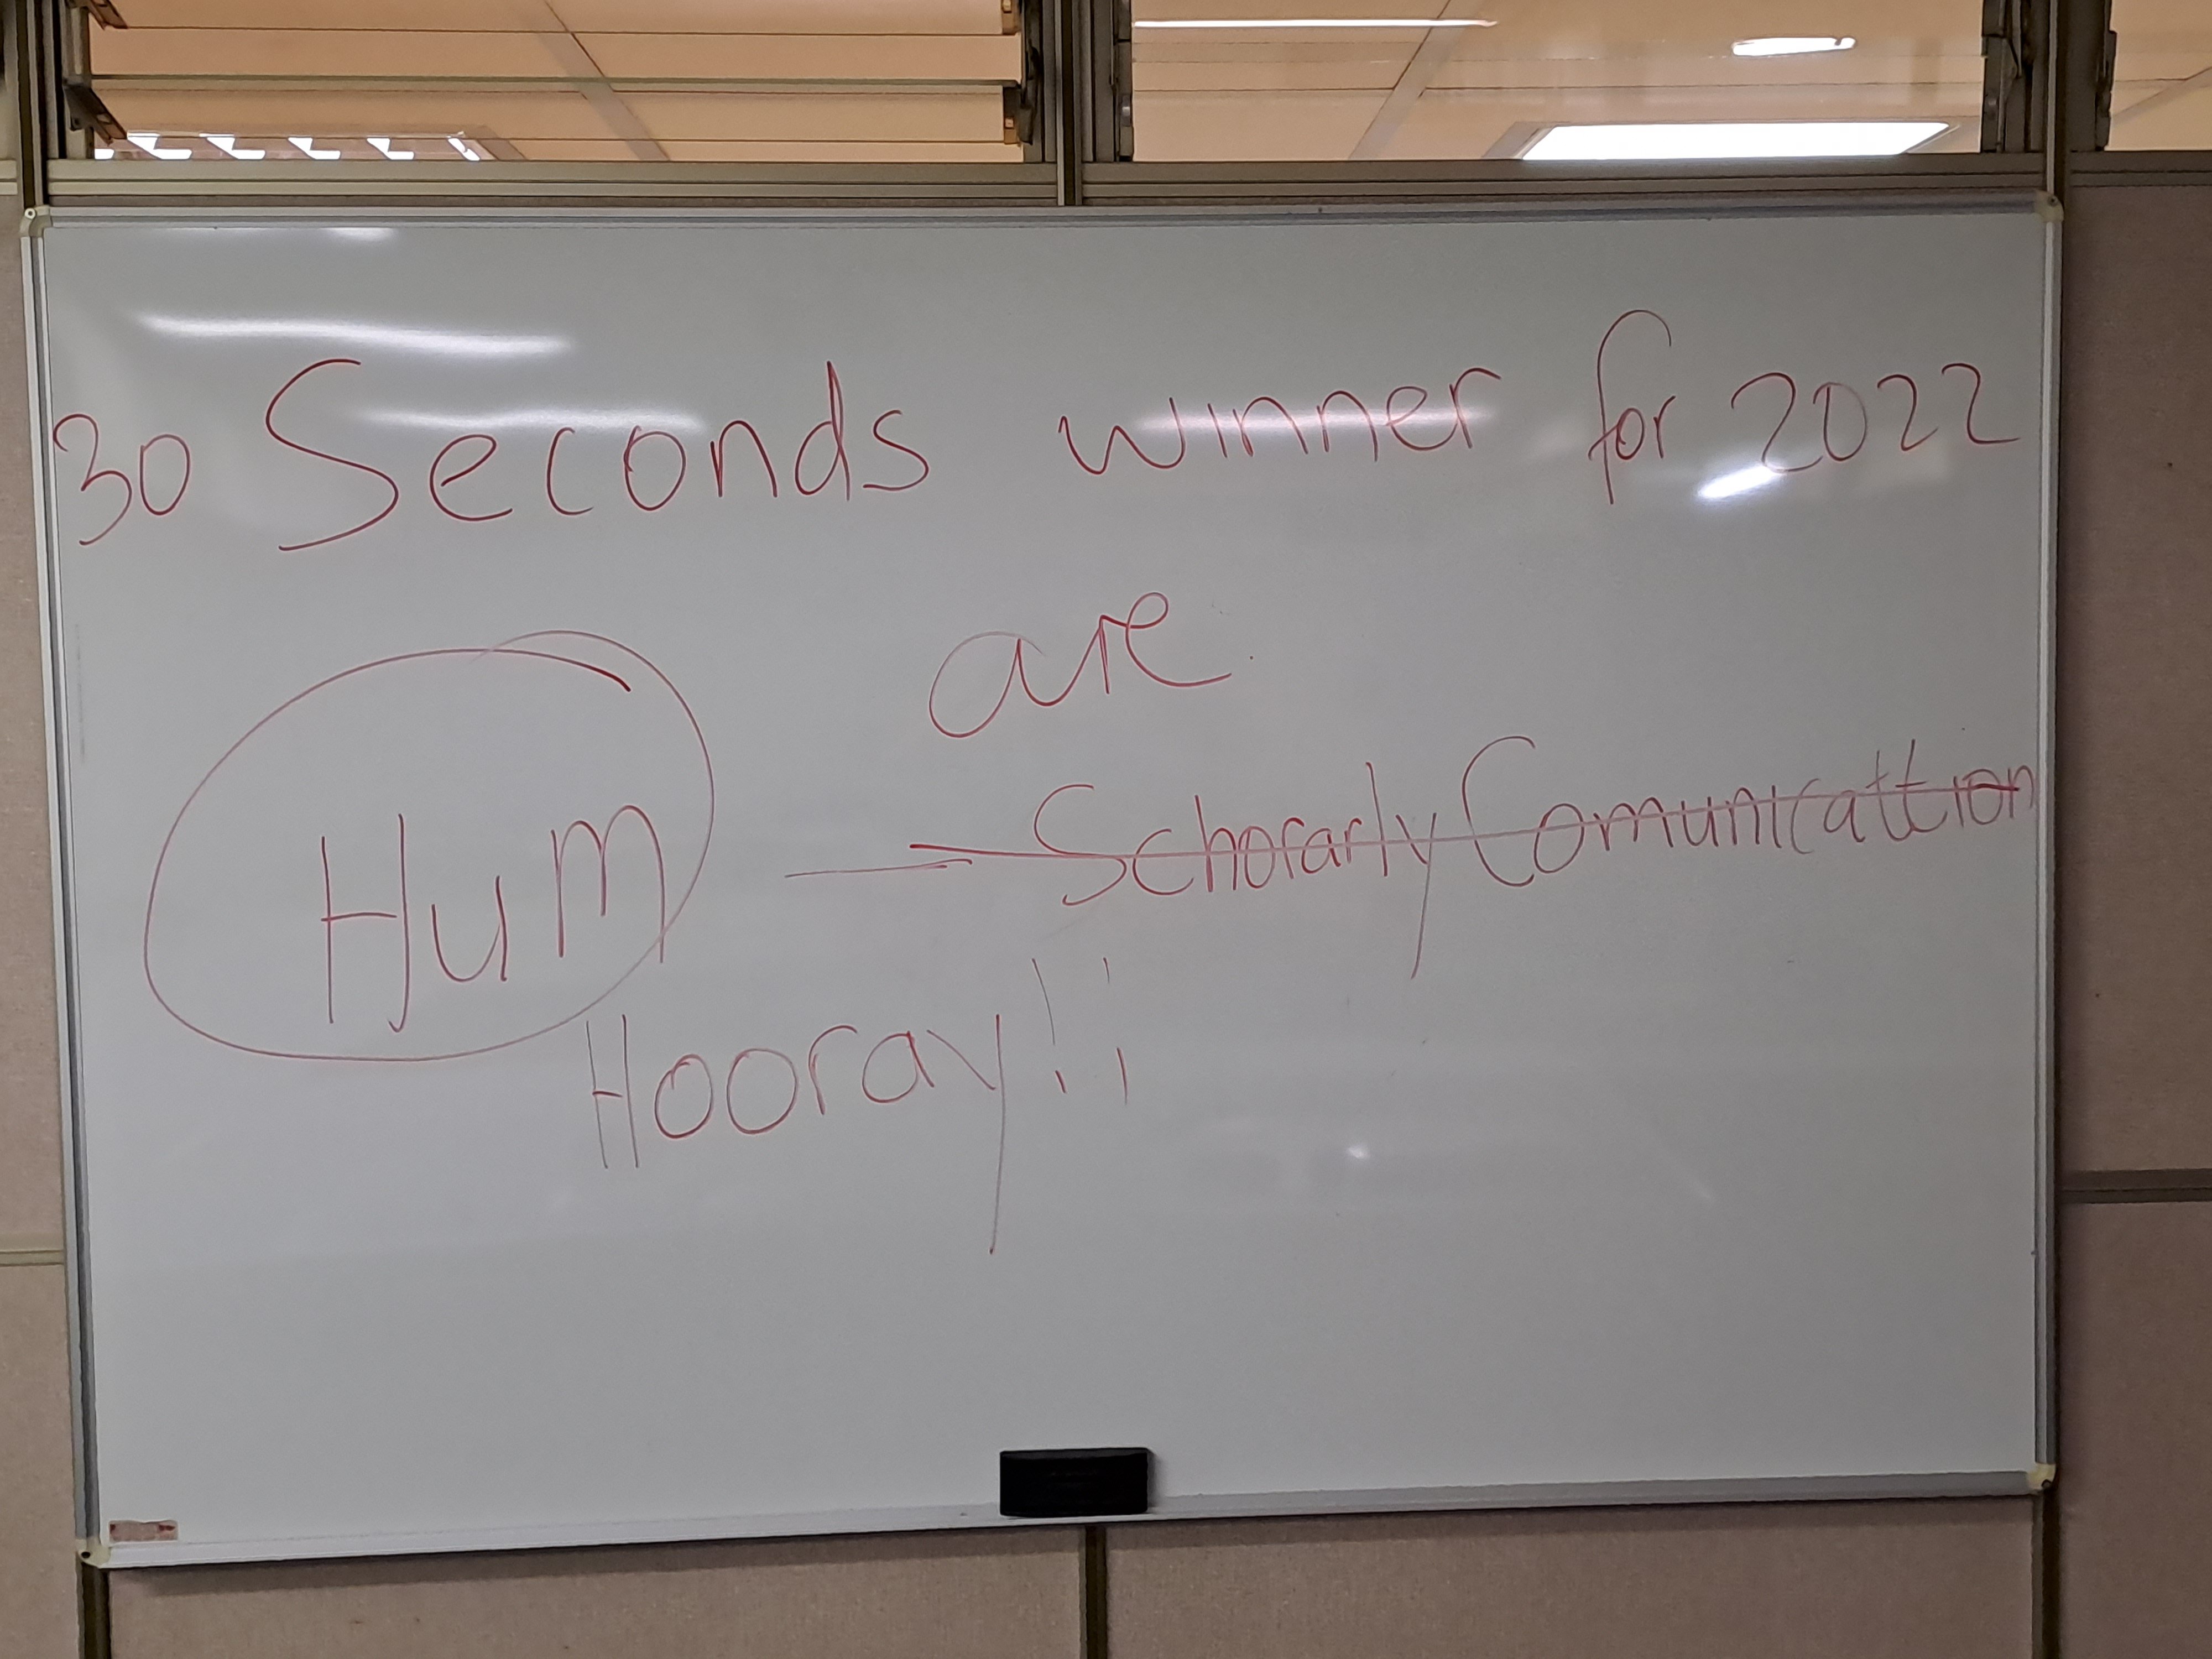 30 Seconds winner for 2022
are
Hum — Schorarly Comunicattion
Hooray!!